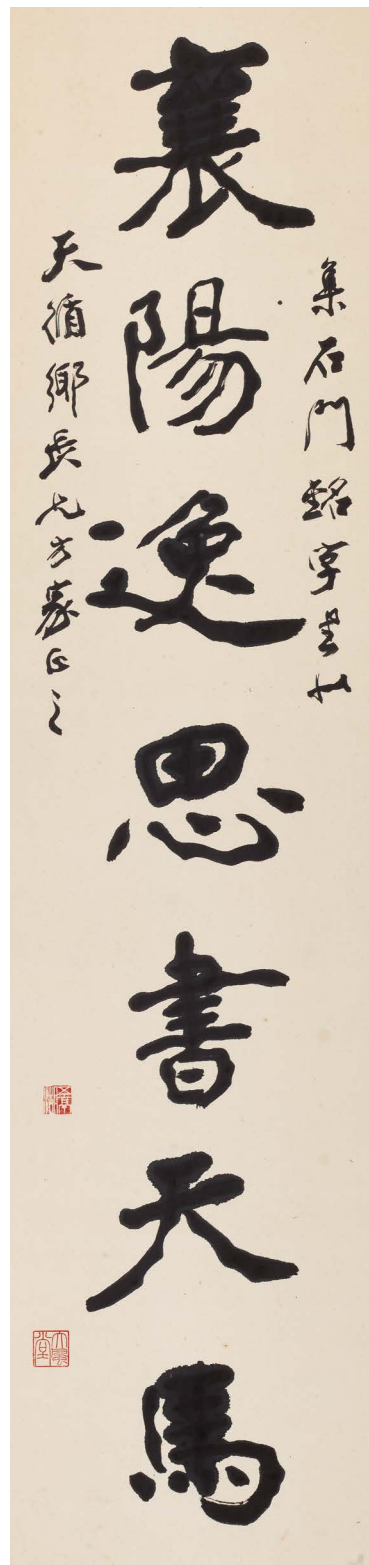 集石門銘字書似
襄陽逸思書天馬
天循鄉長兄方家正之
大風堂